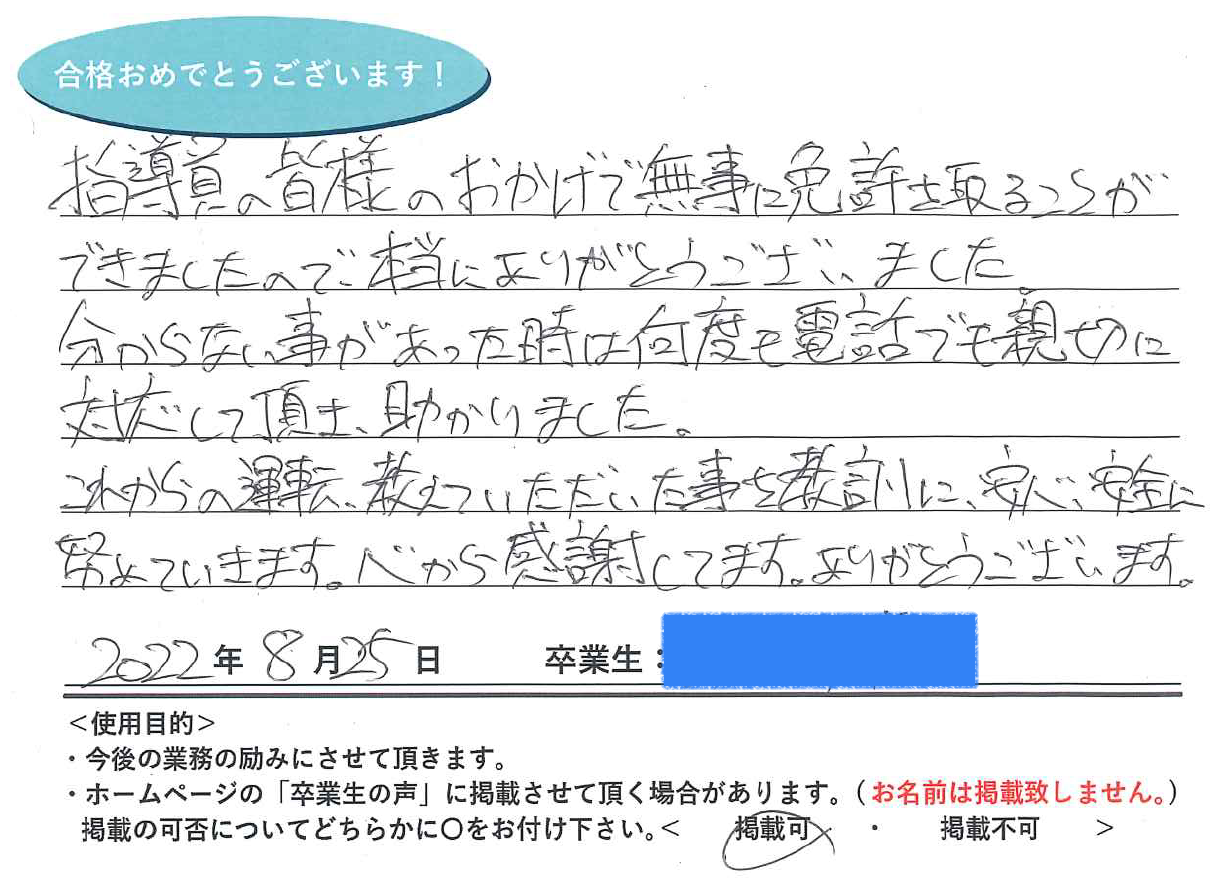 合格おめでとうございます！
指導員の皆様のおかげで無事に免許を取ることが
できましたので、本当にありがとうございました。
分からない事があった時は何度も電話でも親切に
対応して頂き、助かりました。
これからの運転、教えていただいた事を教訓に、安心、安全に
努めていきます。心から感謝してます。ありがとうございます。
2022年8月25日 卒業生：
＜使用目的＞
・今後の業務の励みにさせて頂きます。
・ホームページの「卒業生の声」に掲載させて頂く場合があります。（お名前は掲載致しません。）
掲載の可否についてどちらかに〇をお付け下さい。＜ 掲載可 ・ 掲載不可 ＞